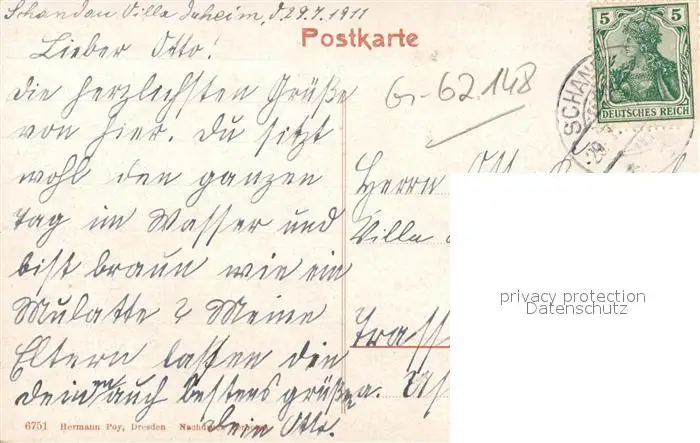 Schandau Villa Daheim, d. 29.7.1911
Postkarte
Lieber Otto!
die herzlichsten Grüße
von hier. Du sitzt
wohl den ganzen
Tag im Wasser und
bist braun wie ein
Mulatte? Meine
Eltern lassen die
Deinen auch bestens grüßen.
Dein Otto.
5 5
DEUTSCHES REICH
SCHAN
29
G-62.148
Herrn Ott
Villa
Trass
a.
privacy protection
Datenschutz
6751 Hermann Poy, Dresden - Nachdruck verboten